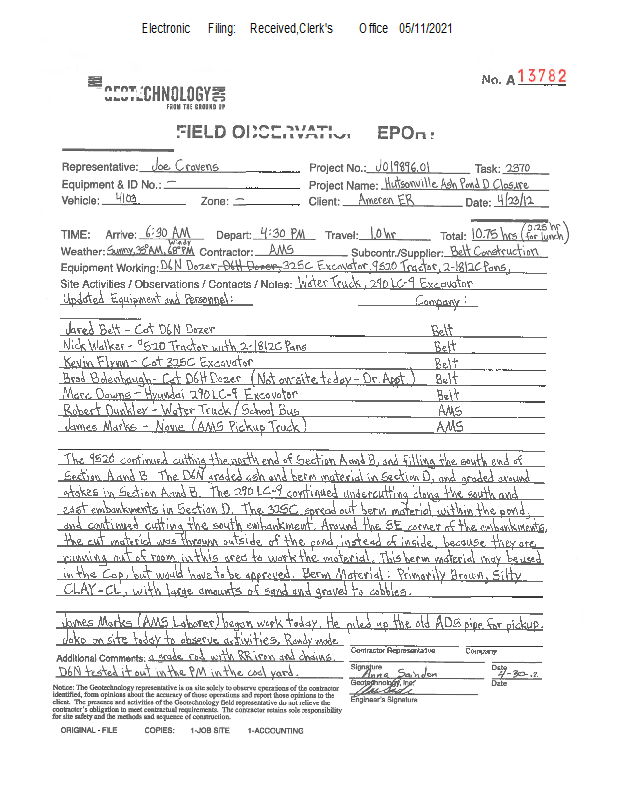 Electronic Filing: Received,Clerk's Office 05/11/2021
No. A 13782
GEOTECHNOLOGY
FROM THE GROUND UP
FIELD OBSERVATION REPORT
Representative: Joe Cravens Project No.: J019896.01 Task: 2370
Equipment & ID No.: — Project Name: Hutsonville Ash Pond D Closure
Vehicle: 4103 Zone: — Client: Ameren ER Date: 4/23/12
TIME: Arrive: 6:30 AM Depart: 4:30 PM Travel: 1.0 hr Total: 10.75 hrs (0.25 hr for lunch)
Weather: Sunny, 38° AM, 68° PM Windy Contractor: AMS Subcontr./Supplier: Belt Construction
Equipment Working: D6N Dozer, D6H Dozer, 325C Excavator, 9520 Tractor, 2-1812C Pans,
Site Activities / Observations / Contacts / Notes: Water Truck, 290 LC-9 Excavator
Updated Equipment and Personnel: Company:
Jared Belt - Cat D6N Dozer Belt
Nick Walker - 9520 Tractor with 2-1812C Pans Belt
Kevin Flynn - Cat 325C Excavator Belt
Brad Bobenhaugh - Cat D6H Dozer (Not on site today - Dr. Appt.) Belt
Marc Downs - Hyundai 290 LC-9 Excavator Belt
Robert Dunkley - Water Truck / School Bus AMS
James Marks - None (AMS Pickup Truck) AMS
The 9520 continued cutting the north end of Section A and B, and filling the south end of
Section A and B. The D6N graded ash and berm material in Section D, and graded around
stakes in Section A and B. The 290 LC-9 continued undercutting along the south and
east embankments in Section D. The 325C spread out berm material within the pond,
and continued cutting the south embankment. Around the SE corner of the embankments,
the cut material was thrown outside of the pond, instead of inside, because they are
running out of room in this area to work the material. This berm material may be used
in the Cap, but would have to be approved. Berm Material: Primarily Brown, Silty
CLAY-CL, with large amounts of sand and gravel to cobbles.
James Marks (AMS Laborer) began work today. He piled up the old ADS pipe for pickup.
Jako on site today to observe activities. Randy made
Additional Comments: a grade rod with RR iron and chains.
D6N tested it out in the PM in the coal yard.
Contractor Representative Company
Signature Date
Anna Saindon 4-30-12
Geotechnology, Inc. Date
Engineer's Signature
Notice: The Geotechnology representative is on site solely to observe operations of the contractor
identified, form opinions about the accuracy of those operations and report those opinions to the
client. The presence and activities of the Geotechnology field representative do not relieve the
contractor's obligation to meet contractual requirements. The contractor retains sole responsibility
for site safety and the methods and sequence of construction.
ORIGINAL - FILE COPIES: 1-JOB SITE 1-ACCOUNTING